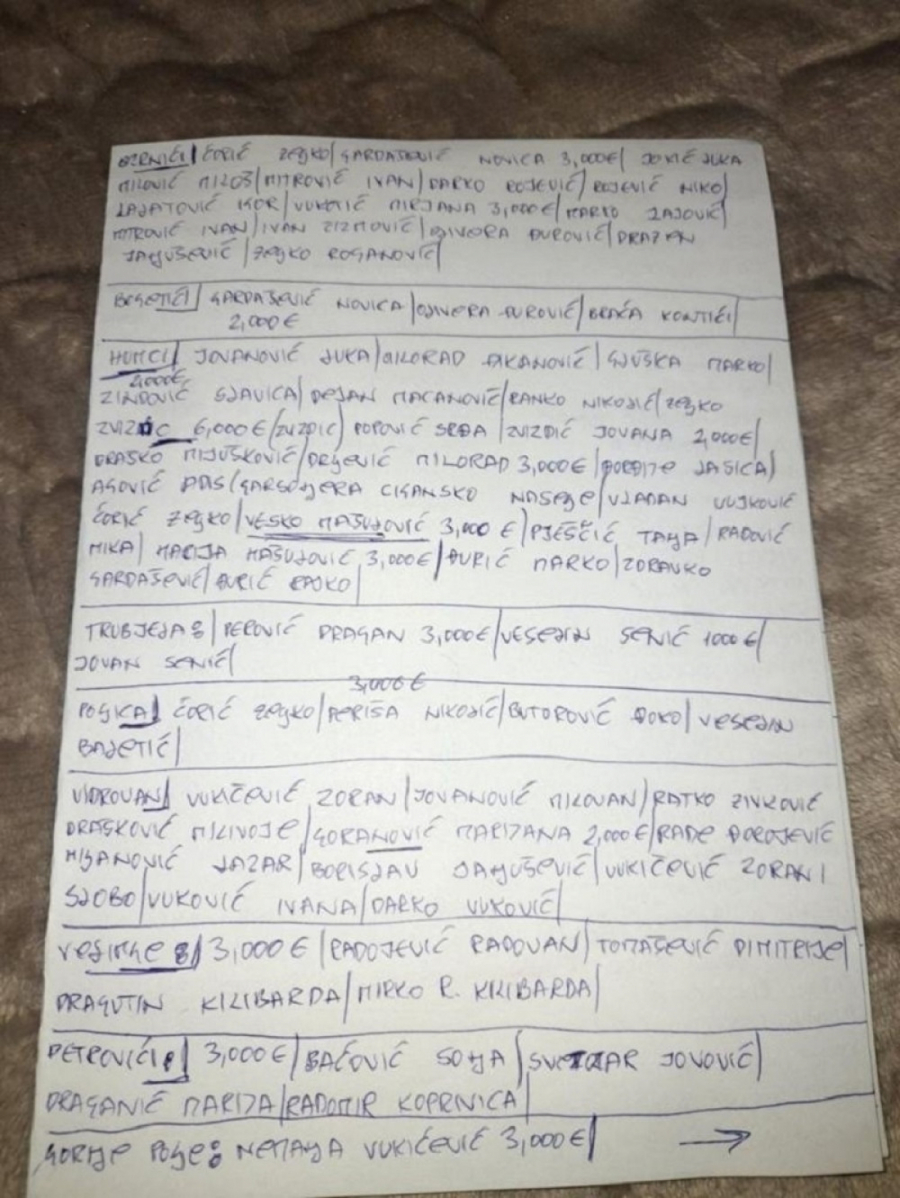 OZRNIĆI/ ĆORIĆ ZEЉKO/GARDAŠEVIĆ NOVICA 3,000€/ JOVIĆ LUKA
MILOVIĆ MILOŠ/MITROVIĆ IVAN/DARKO ROJEVIĆ/ROJEVIĆ NIKO/
LALATOVIĆ IGOR/VUKOTIĆ MIRJANA 3,000€/MARKO LALOVIĆ/
MITROVIĆ IVAN/IVAN ZIZMOVIĆ/OLIVERA ĐUROVIĆ/DRAZEN
JAЊUŠEVIĆ/ZEЉKO ROGANOVIĆ/
BRSETIĆI/ GARDAŠEVIĆ NOVICA/OLIVERA ĐUROVIĆ/BRAĆA KONTIĆI/
2,000€
HUMCI/ JOVANOVIĆ LUKA/MILORAD ĐIKANOVIĆ/GLUŠKA MARKO/
2,000€
ZINDOVIĆ SLAVICA/DEJAN MACANOVIĆ/RANKO NIKOLIĆ/ZEЉKO
ZVIZDIĆ 6,000€/ZVIZDIĆ/POPOVIĆ SRĐA/ZVIZDIĆ JOVANA 2,000€/
DRAŠKO MIJUŠKOVIĆ/DRЉEVIĆ MILORAD 3,000€/ĐORĐIJE LASICA/
AGOVIĆ ADIS/GARSOЊERA CIGANSKO NASEЉE/VLADAN VUJKOVIĆ
ĆORIĆ ZEЉKO/VESKO MAŠULOVIĆ 3,000€/PJEŠČIĆ TAЊA/RADOVIĆ
MIKA/MARIJA MAŠULOVIĆ 3,000€/ĐURIĆ MARKO/ZDRAVKO
GARDAŠEVIĆ/ĐURIĆ RAJKO/
TRUBJELA:/PEROVIĆ DRAGAN 3,000€/VESELIN SENIĆ 1000€/
JOVAN SENIĆ/
3,000€
POЉICA/ ĆORIĆ ZEЉKO/PERIŠA NIKOLIĆ/BUTOROVIĆ ĐOKO/VESELIN
BALETIĆ/
VIDROVAN/ VUKIČEVIĆ ZORAN/JOVANOVIĆ MILOVAN/RATKO ZIVKOVIĆ
DRAŠKOVIĆ MILIVOJE/GORANOVIĆ MARIJANA 2,000€/RADE ĐOROJEVIĆ
MIЉANOVIĆ LAZAR/BORISLAV JAЊUŠEVIĆ/VUKIČEVIĆ ZORAN I
SLOBO/VUKOVIĆ IVANA/DARKO VUKOVIĆ/
VELIMЉE:/3,000€/RADOJEVIĆ RADOVAN/TOMAŠEVIĆ DIMITRIJE/
DRAGUTIN KILIBARDA/MIRKO R. KILIBARDA/
PETROVIĆI:/ 3,000€/BAĆOVIĆ SOЊA/SVETLAR JOVOVIĆ/
DRAGANIĆ MARIJA/RADOMIR KOPRIVICA/
GORЊE POЉE: NEMAЊA VUKIĆEVIĆ 3,000€/ →